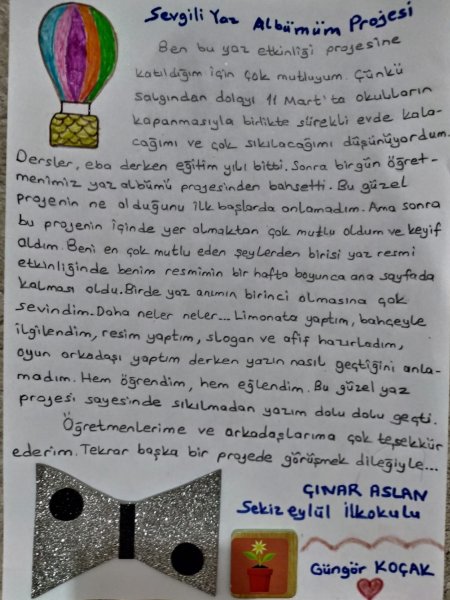 Sevgili Yaz Albümüm Projesi
Ben bu yaz etkinliği projesine
katıldığım için çok mutluyum. Çünkü
salgından dolayı 11 Mart'ta okulların
kapanmasıyla birlikte sürekli evde kala-
cağımı ve çok sıkılacağımı düşünüyordum.
Dersler, eba derken eğitim yılı bitti. Sonra birgün öğret-
menimiz yaz albümü projesinden bahsetti. Bu güzel
projenin ne olduğunu ilk başlarda anlamadım. Ama sonra
bu projenin içinde yer almaktan çok mutlu oldum ve keyif
aldım. Beni en çok mutlu eden şeylerden birisi yaz resmi
etkinliğinde benim resmimin bir hafta boyunca ana sayfada
kalması oldu. Birde yaz anımın birinci olmasına çok
sevindim. Daha neler neler... Limonata yaptım, bahçeyle
ilgilendim, resim yaptım, slogan ve afiş hazırladım,
oyun arkadaşı yaptım derken yazın nasıl geçtiğini anla-
madım. Hem öğrendim, hem eğlendim. Bu güzel yaz
projesi sayesinde sıkılmadan yazım dolu dolu geçti.
Öğretmenlerime ve arkadaşlarıma çok teşekkür
ederim. Tekrar başka bir projede görüşmek dileğiyle...
ÇINAR ASLAN
Sekiz eylül İlkokulu
Güngör KOÇAK